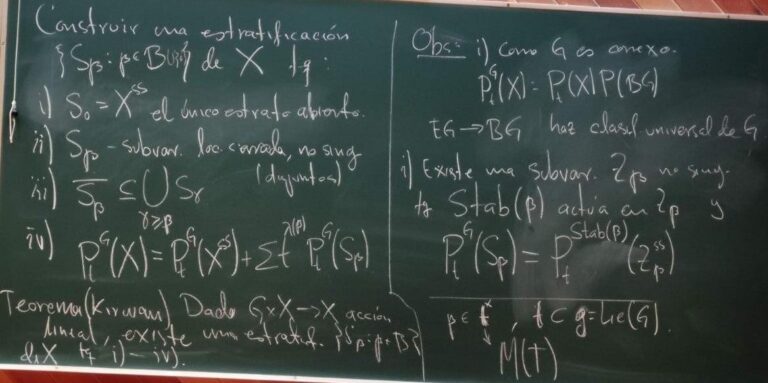 Construir una estratificación
{S_β : β ∈ B∪{0}} de X tq :
i) S_0 = X^{ss} el único estrato abierto.
ii) S_β - subvar. loc. cerrada, no sing
(disjuntos)
iii) \overline{S_β} ⊆ ⋃_{γ≥β} S_γ
iv) P_t^G(X) = P_t^G(X^{ss}) + Σ t^{λ(β)} P_t^G(S_β)
Teorema (Kirwan) Dado G×X → X acción
lineal, existe una estratif. {S_β : β ∈ B}
de X tq i) - iv).
Obs: i) Como G es conexo.
P_t^G(X) = P_t(X) P(BG)
EG → BG haz clasif universal de G
i) Existe una subvar. Z_β no sing.
tq Stab(β) actúa en Z_β y
P_t^G(S_β) = P_t^{Stab(β)}(Z_β^{ss})
β ∈ t*, t ⊂ g = Lie(G).
M(T)